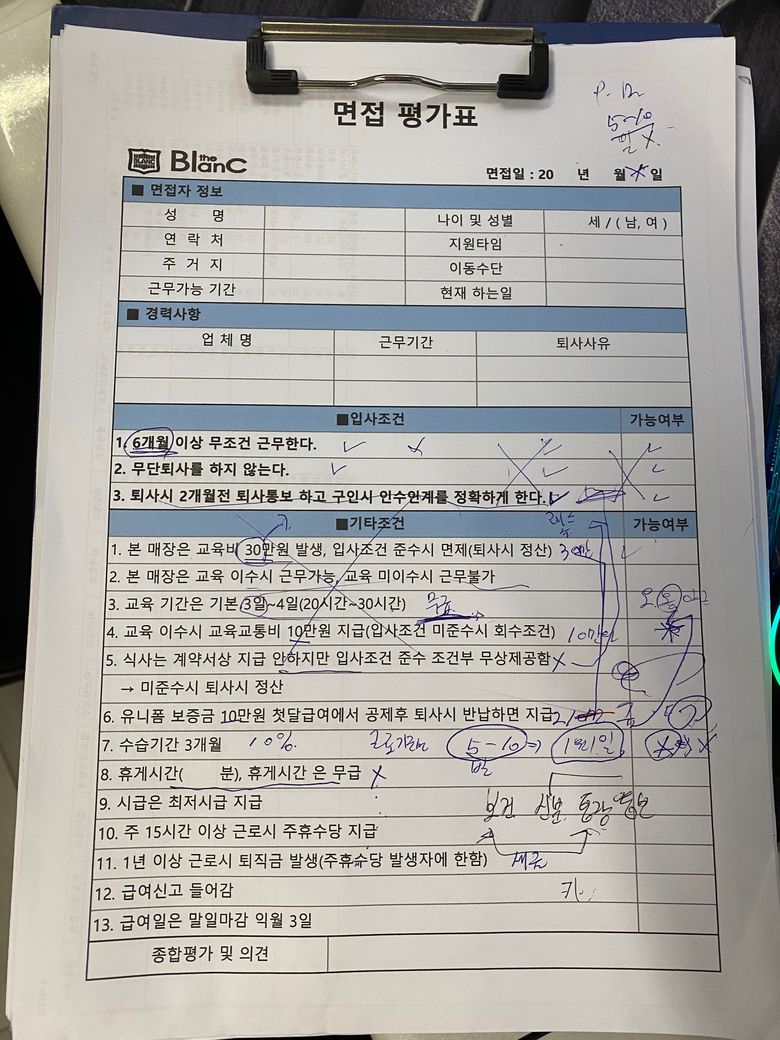 면접 평가표
5~10
the
BlanC
면접일 : 20 년 월 일
■ 면접자 정보
성 명 나이 및 성별 세 / ( 남, 여 )
연 락 처 지원타임
주 거 지 이동수단
근무가능 기간 현재 하는일
■ 경력사항
업 체 명 근무기간 퇴사사유
■입사조건 가능여부
1. 6개월 이상 무조건 근무한다.
2. 무단퇴사를 하지 않는다.
3. 퇴사시 2개월전 퇴사통보 하고 구인시 인수인계를 정확하게 한다.
■기타조건 가능여부
1. 본 매장은 교육비 30만원 발생, 입사조건 준수시 면제(퇴사시 정산) 30만
2. 본 매장은 교육 이수시 근무가능, 교육 미이수시 근무불가
3. 교육 기간은 기본 3일~4일(20시간~30시간) 무급
4. 교육 이수시 교육교통비 10만원 지급(입사조건 미준수시 회수조건) 10만
5. 식사는 계약서상 지급 안하지만 입사조건 준수 조건부 무상제공함
→ 미준수시 퇴사시 정산
6. 유니폼 보증금 10만원 첫달급여에서 공제후 퇴사시 반납하면 지급
7. 수습기간 3개월 10%. 5-10 ⇒ 1월1일
8. 휴게시간( 분), 휴게시간 은 무급
9. 시급은 최저시급 지급 보건 신분 통장
10. 주 15시간 이상 근로시 주휴수당 지급
11. 1년 이상 근로시 퇴직금 발생(주휴수당 발생자에 한함) 세금
12. 급여신고 들어감
13. 급여일은 말일마감 익월 3일
종합평가 및 의견